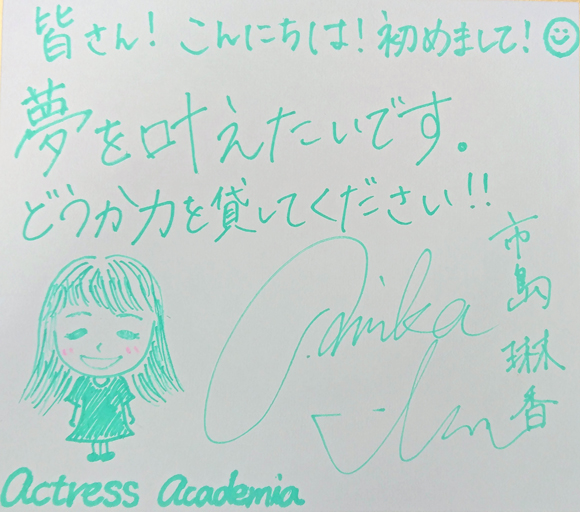 皆さん! こんにちは! 初めまして!
夢を叶えたいです。
どうか力を貸してください!!
市島琳香
Actress Academia